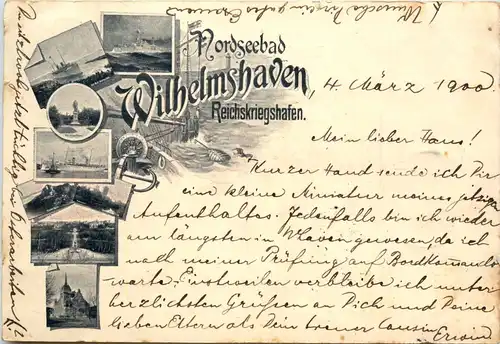 Nordseebad
Wilhelmshaven, 4. März 1900.
Reichskriegshafen.
Mein lieber Hans!
Kurzer Hand sende ich Dir
eine kleine Miniatur meines jetzigen
Aufenthaltes. Jedenfalls bin ich wieder
am längsten in W'haven gewesen, da ich
nach meiner Prüfung auf Bordkommando
warte. Einstweilen verbleibe ich unter
herzlichsten Grüßen an Dich und Deine
lieben Eltern als Dein treuer Cousin
Erwin